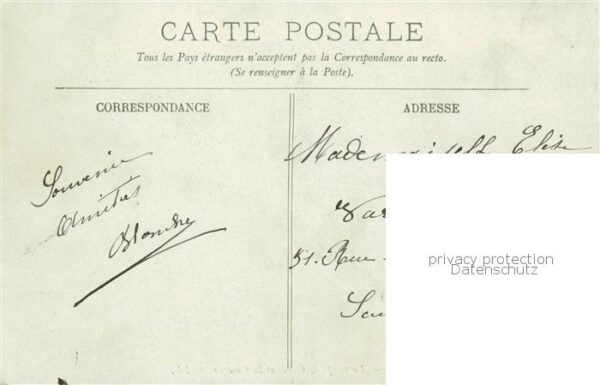 CARTE POSTALE
Tous les Pays étrangers n'acceptent pas la Correspondance au recto.
(Se renseigner à la Poste).
CORRESPONDANCE
ADRESSE
Souvenir
Amitiés
Blanche
Mademoiselle Elise
51. Rue
privacy protection
Datenschutz